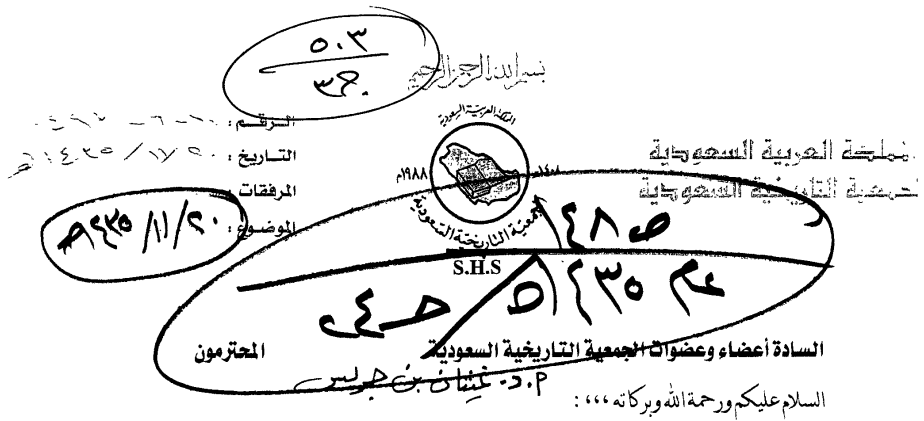 ٥٠٣
ج٣
بسم الله الرحمن الرحيم
المملكة العربية السعودية
الجمعية التاريخية السعودية
المملكة العربية السعودية
١٤٠٨هـ
١٩٨٨م
الجمعية التاريخية السعودية
S.H.S
الرقم :
التاريخ : ٢٠ / ١١ / ١٤٣٥هـ
المرفقات :
الموضوع :
٢٠ / ١١ / ١٤٣٥هـ
ص ١٤٨
عام ١٤٣٥هـ
السادة أعضاء وعضوات الجمعية التاريخية السعودية المحترمون
م.د. غيثان بن جريس
السلام عليكم ورحمة الله وبركاته ،،، :